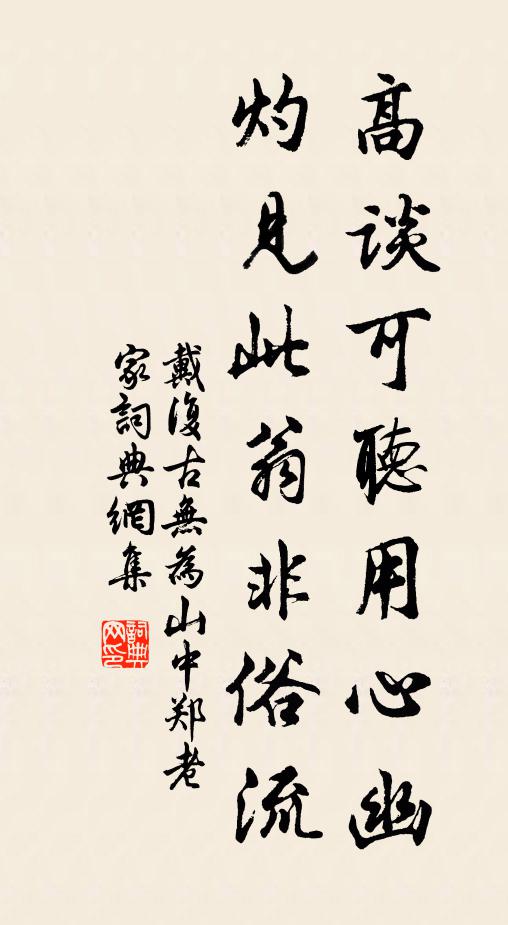 高談可聽用心幽
灼見此翁非俗流
戴復古無為山中郑老
家詞典網集
詞典
网印